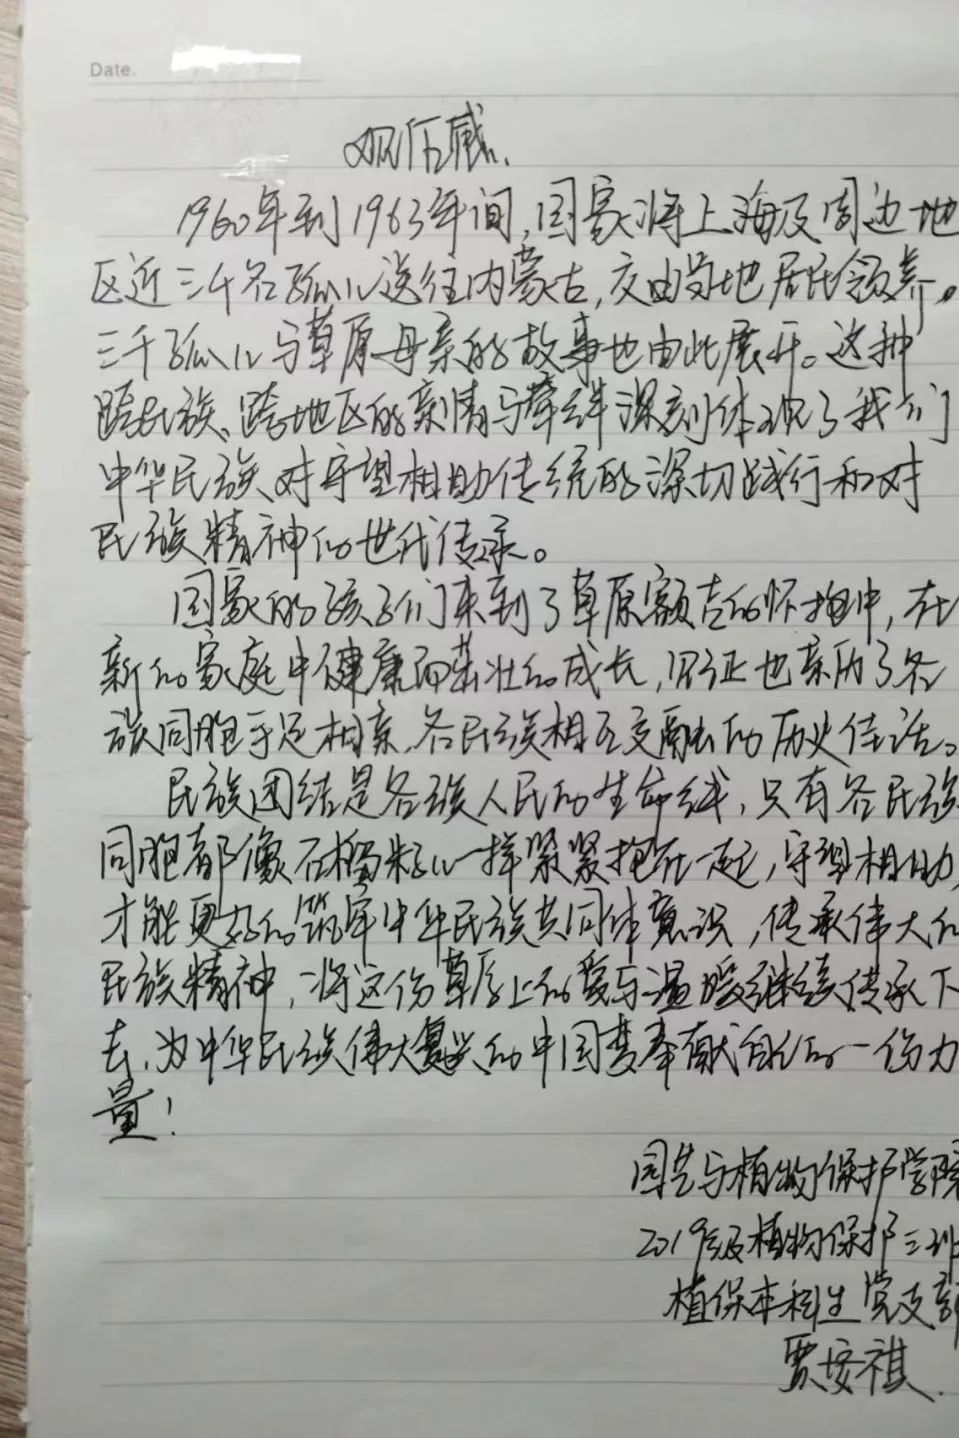 Date.
观后感.
1960年到1963年间,国家将上海及周边地
区近三千名孤儿送往内蒙古,交由当地居民领养。
三千孤儿与草原母亲的故事也由此展开。这种
跨民族、跨地区的亲情与牵绊深刻体现了我们
中华民族对守望相助传统的深切践行和对
民族精神的世代传承。
国家的孩子们来到了草原额吉的怀抱中,在
新的家庭中健康而茁壮的成长,见证也亲历了各
族同胞手足相亲、各民族相互交融的历史佳话。
民族团结是各族人民的生命线,只有各民族
同胞都像石榴籽儿一样紧紧抱在一起,守望相助,
才能更好的筑牢中华民族共同体意识,传承伟大的
民族精神,将这份草原上的爱与温暖继续传承下
去,为中华民族伟大复兴的中国梦奉献自己的一份力
量!
园艺与植物保护学院
2019级植物保护三班
植保本科生党支部
贾安祺.